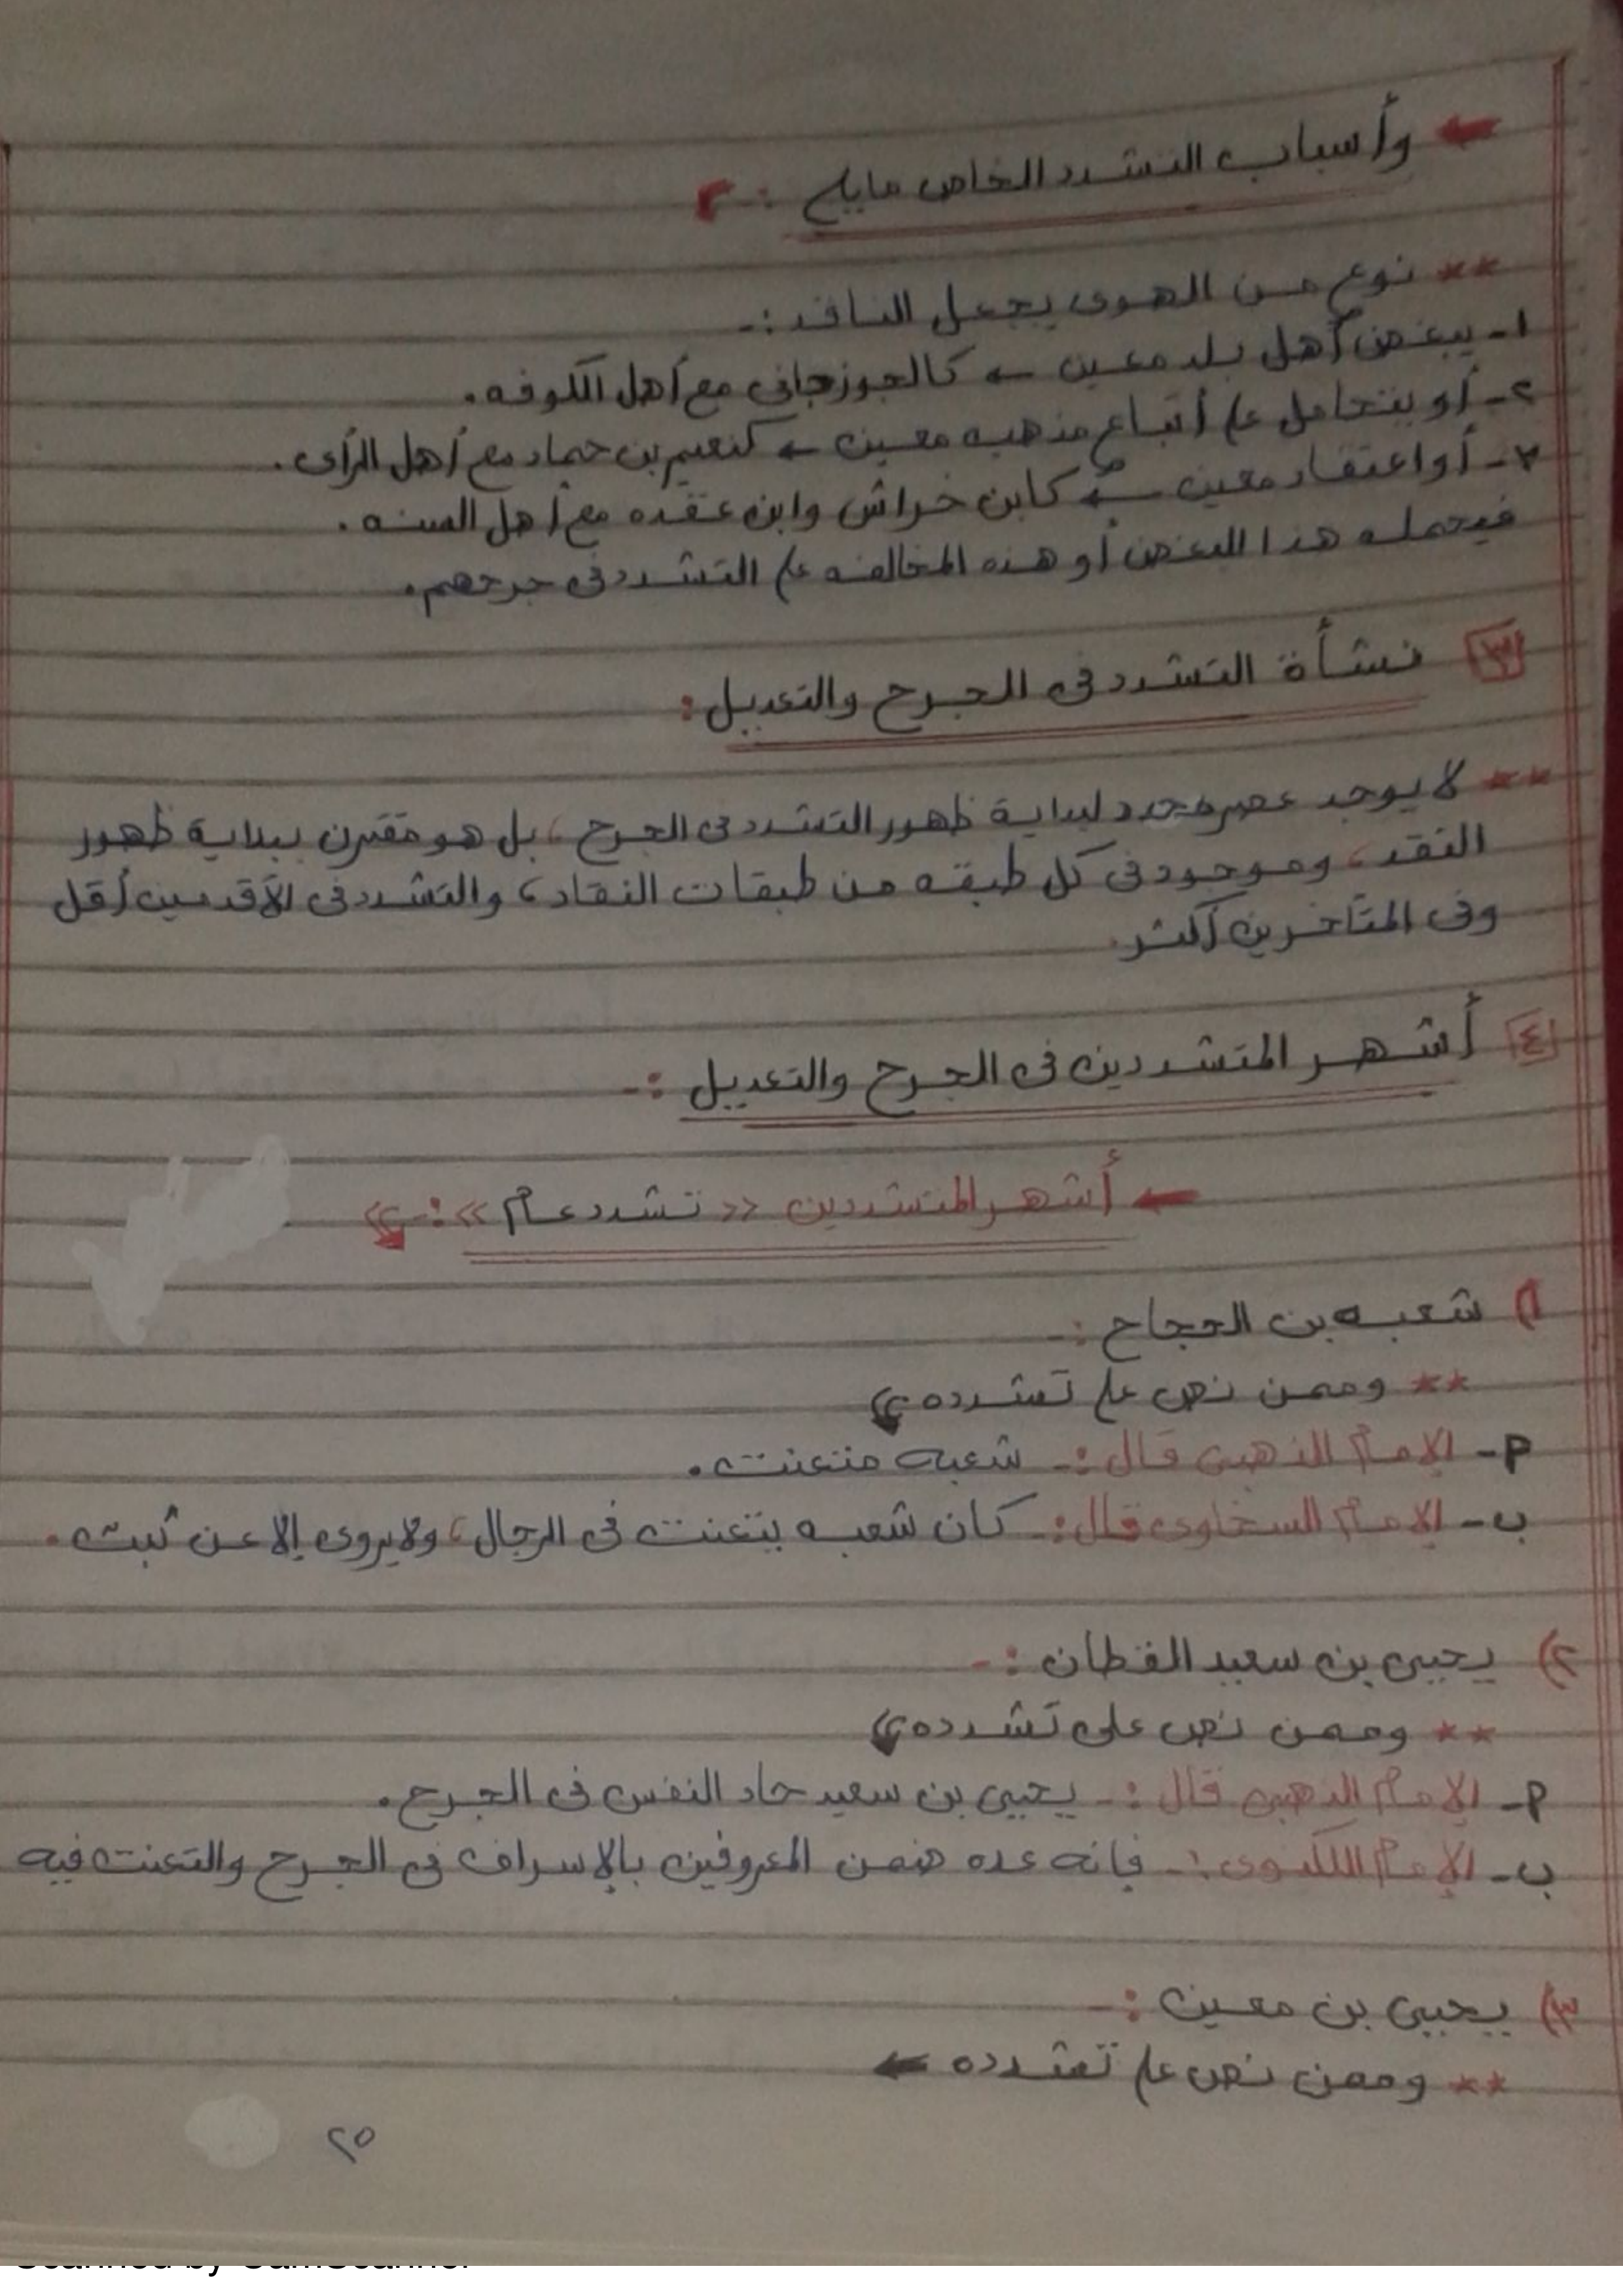 ← وأسباب التشدد الخاص مايلى :-
** نوع من الهوى يجعل الناقد :-
١- يبغض أهل بلد معين ← كالجوزجانى مع أهل الكوفه .
٢- أو يتحامل على أتباع مذهب معين ← كنعيم بن حماد مع أهل الرأى .
٣- أو اعتقاد معين ← كابن خراش وابن عقده مع أهل السنه .
فيحمله هذا البغض أو هذه المخالفه على التشدد فى جرحهم .
٣ نشأة التشدد فى الجرح والتعديل :
** لا يوجد عصر محدد لبداية ظهور التشدد فى الجرح ، بل هو مقترن ببداية ظهور
النقد ، وموجود فى كل طبقه من طبقات النقاد ، والتشدد فى الأقدمين أقل
وفى المتأخرين أكثر .
٤ أشهر المتشددين فى الجرح والتعديل :-
← أشهر المتشددين << تشدد عام >> :-
١) شعبه بن الحجاج :-
** وممن نص على تشدده
P- الإمام الذهبى قال :- شعبه متعنت .
ب- الإمام السخاوى قال :- كان شعبه يتعنت فى الرجال ، ولا يروى إلا عن ثبت .
٢) يحيى بن سعيد القطان :-
** وممن نص على تشدده
P- الإمام الذهبى قال :- يحيى بن سعيد حاد النفس فى الجرح .
ب- الإمام اللكنوى :- فإنه عده ضمن المعروفين بالإسراف فى الجرح والتعنت فيه
٣) يحيى بن معين :-
** وممن نص على تشدده ←
٢٥
Scanned by CamScanner